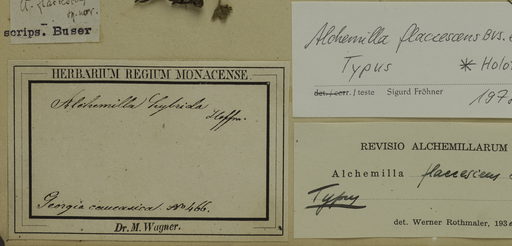 sp. nov.
scrips. Buser
HERBARIUM REGIUM MONACENSE
Alchemilla hybrida
Hoffm.
Georgia caucasica. No 466.
Dr. M. Wagner.
Alchemilla flaccescens Bus.
Typus * Holo
det./corr./teste Sigurd Fröhner
197
REVISIO ALCHEMILLARUM
Alchemilla flaccescens
Typus
det. Werner Rothmaler, 193